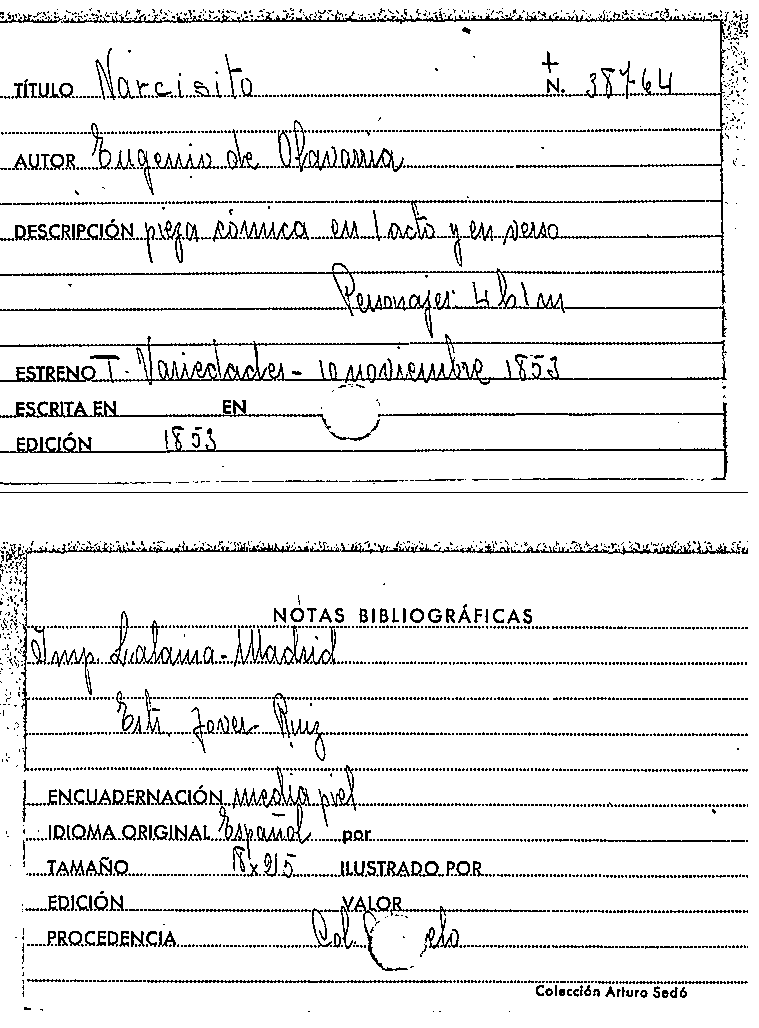 TÍTULO Narcisito + N. 38764
AUTOR Eugenio de Olavarria
DESCRIPCIÓN pieza cómica en 1 acto y en verso
Personajes: 4 h 1 m
ESTRENO T. Variedades - 10 noviembre 1853
ESCRITA EN EN
EDICIÓN 1853
NOTAS BIBLIOGRÁFICAS
Imp. Lalama - Madrid
Estr. Jover - Ruiz
ENCUADERNACIÓN media piel
IDIOMA ORIGINAL Español por
TAMAÑO ILUSTRADO POR
EDICIÓN VALOR
PROCEDENCIA Col.
Colección Arturo Sedó